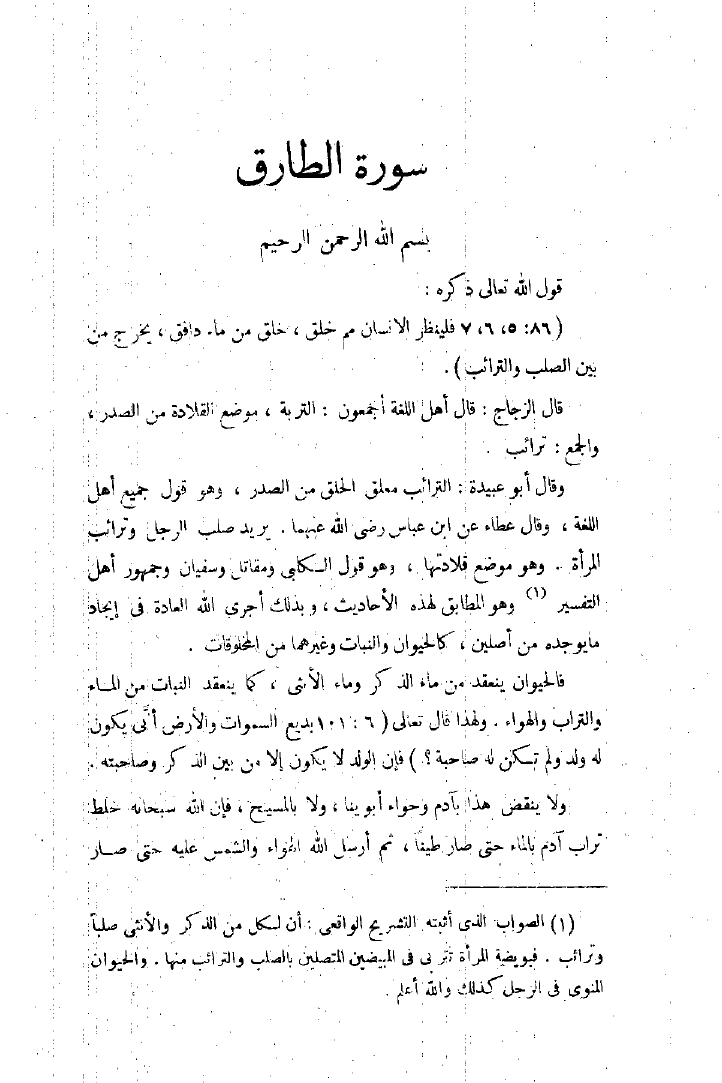 سورة الطارق
بسم الله الرحمن الرحيم
قول الله تعالى ذكره :
( ٨٦: ٥، ٦، ٧ فلينظر الانسان مم خلق ، خلق من ماء دافق ، يخرج من
بين الصلب والترائب ) .
قال الزجاج : قال أهل اللغة أجمعون : التربة ، موضع القلادة من الصدر ،
والجمع : ترائب .
وقال أبو عبيدة : الترائب معلق الحلق من الصدر ، وهو قول جميع أهل
اللغة ، وقال عطاء عن ابن عباس رضى الله عنهما . يريد صلب الرجل وترائب
المرأة . وهو موضع قلادتها ، وهو قول الكلبى ومقاتل وسفيان وجمهور أهل
التفسير (١) وهو المطابق لهذه الأحاديث ، وبذلك أجرى الله العادة فى إيجاد
مايوجده من أصلين ، كالحيوان والنبات وغيرهما من المخلوقات .
فالحيوان ينعقد من ماء الذكر وماء الأنثى ، كما ينعقد النبات من الماء
والتراب والهواء . ولهذا قال تعالى ( ٦ : ١٠١ بديع السموات والأرض أنَّى يكون
له ولد ولم تكن له صاحبة ؟ ) فإن الولد لا يكون إلا من بين الذكر وصاحبته .
ولا ينقض هذا بآدم وحواء أبوينا ، ولا بالمسيح ، فإن الله سبحانه خلط
تراب آدم بالماء حتى صار طيناً ، ثم أرسل الله الهواء والشمس عليه حتى صار
(١) الصواب الذى أثبته التشريح الواقعى : أن لكل من الذكر والأنثى صلباً
وترائب . فبويضة المرأة تتربى فى المبيضين المتصلين بالصلب والترائب منها . والحيوان
المنوى فى الرجل كذلك والله أعلم .